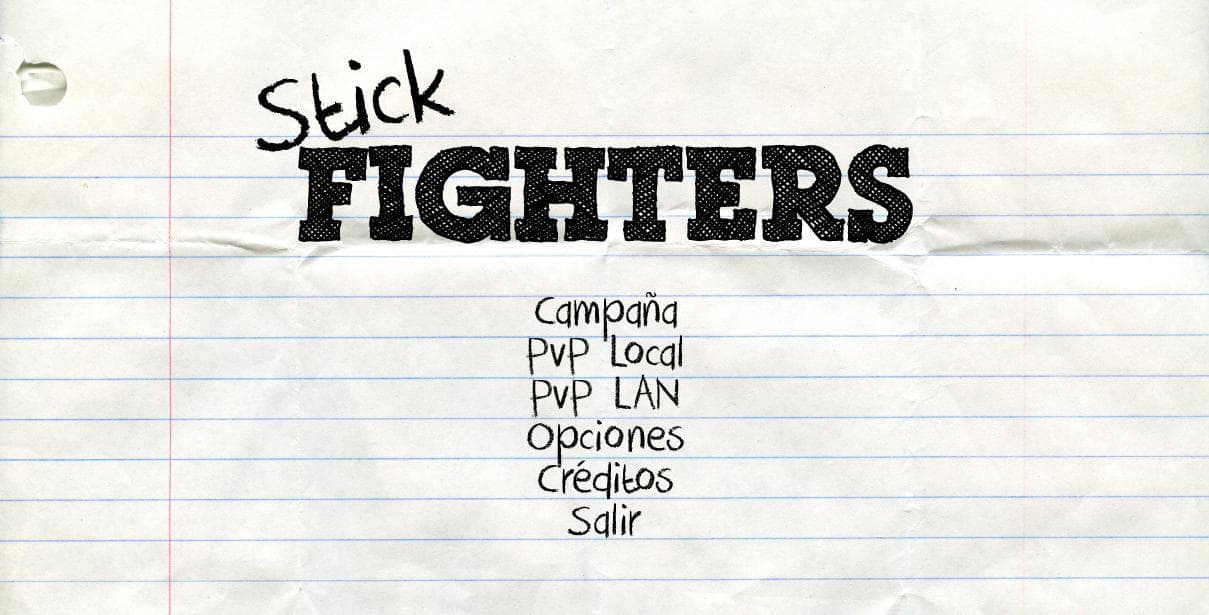 Stick
FIGHTERS
Campaña
PvP Local
PvP LAN
Opciones
Créditos
Salir